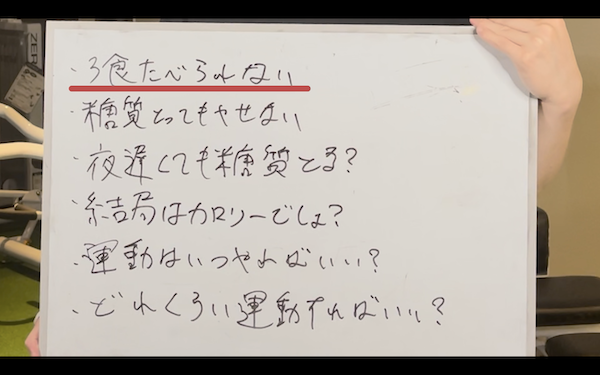 ・3食たべられない
・糖質とってもやせない
・夜遅くても糖質とる?
・結局はカロリーでしょ?
・運動はいつやればいい?
・どれくらい運動すればいい?